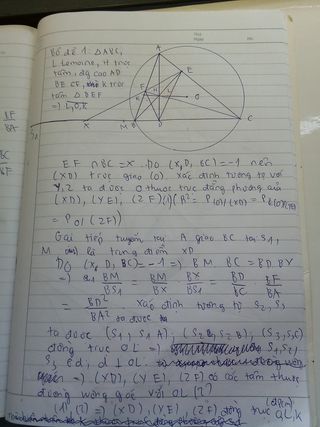 Bổ đề 1. △ABC,
L Lemoine, H trực
tâm, đg cao AD
BE CF, K trực
tâm △DEF
=> L, O, K
A
E
F
H
L
O
X
M
B
D
C
S1
EF
BA
BC
EF ∩ BC = X. Do (X, D, BC) = -1 nên
(XD) trực giao (O) xác định tương tự với
Y, Z ta được O thuộc trục đẳng phương của
(XD), (YE), (ZF) (1) (R² = P(O)/(XD) = P
= P O/(ZF))
Gọi tiếp tuyến tại A giao BC tại S1,
M là trung điểm XD
Do (X, D, BC) = -1 => BM BC = BD BX
=> BM/BS1 = BM/BX BX/BS1 = BD/BC EF/BA
= BD²/BA² xác định tương tự S2, S3
ta được (S1, S1A); (S2, S2B); (S3, S3C)
đồng trục OL => S1, S2,
S3 ∈ d, d ⊥ OL.
=> (XD), (YE), (ZF) có các tâm thuộc
đường vuông góc với OL (2)
(1), (2) => (XD), (YE), (ZF) đồng trục OLK
(đpcm)